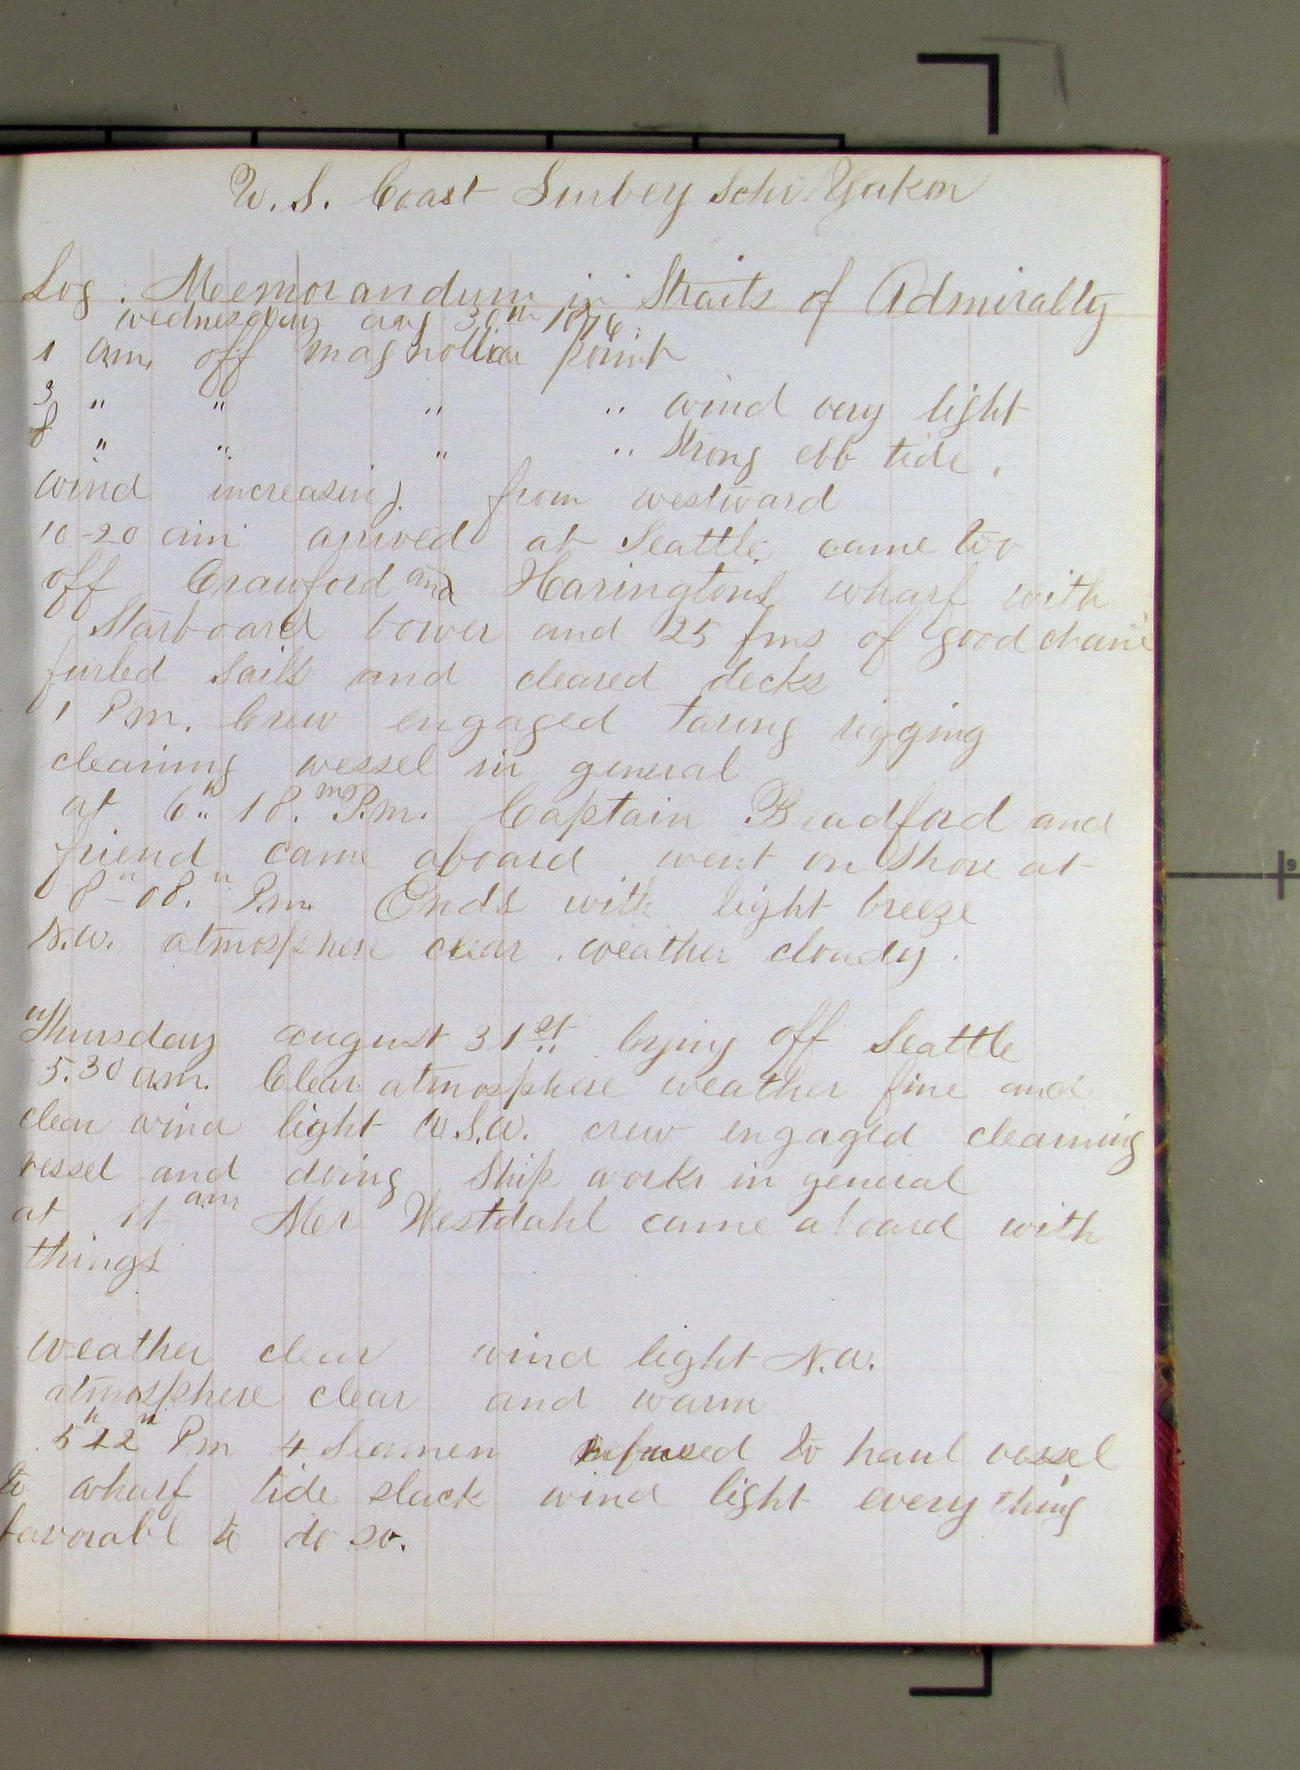 U.S. Coast Survey Schr. Yukon
Log. Memorandum in Straits of Admiralty
Wednesday aug 30th 1876.
1 am. off magnollia point
3 " " " " wind very light
8 " " " " Strong ebb tide.
wind increasing from westward
10-20 am arrived at Seattle came too
off Crawford and Harington's wharf with
Starboard bower and 25 fms of good chain
furled sails and cleared decks
1 Pm. Crew engaged taring rigging
cleaning vessel in general
at 6h 18.m P.m. Captain Bradford and
friend came aboard went on Shore at
8h-08.m Pm. Ends with light breeze
N.W. atmosphere clear. weather cloudy.
Thursday august 31st lying off Seattle
5.30 a.m. Clear atmosphere weather fine and
clear wind light W.S.W. crew engaged cleaning
vessel and doing Ship works in general
at 11 am Mer Westdahl came aboard with
things
weather clear wind light N.W.
atmosphere clear and warm
5h 22m Pm 4 Seamen refused to haul vessel
to wharf tide slack wind light every thing
favorabl to do so.